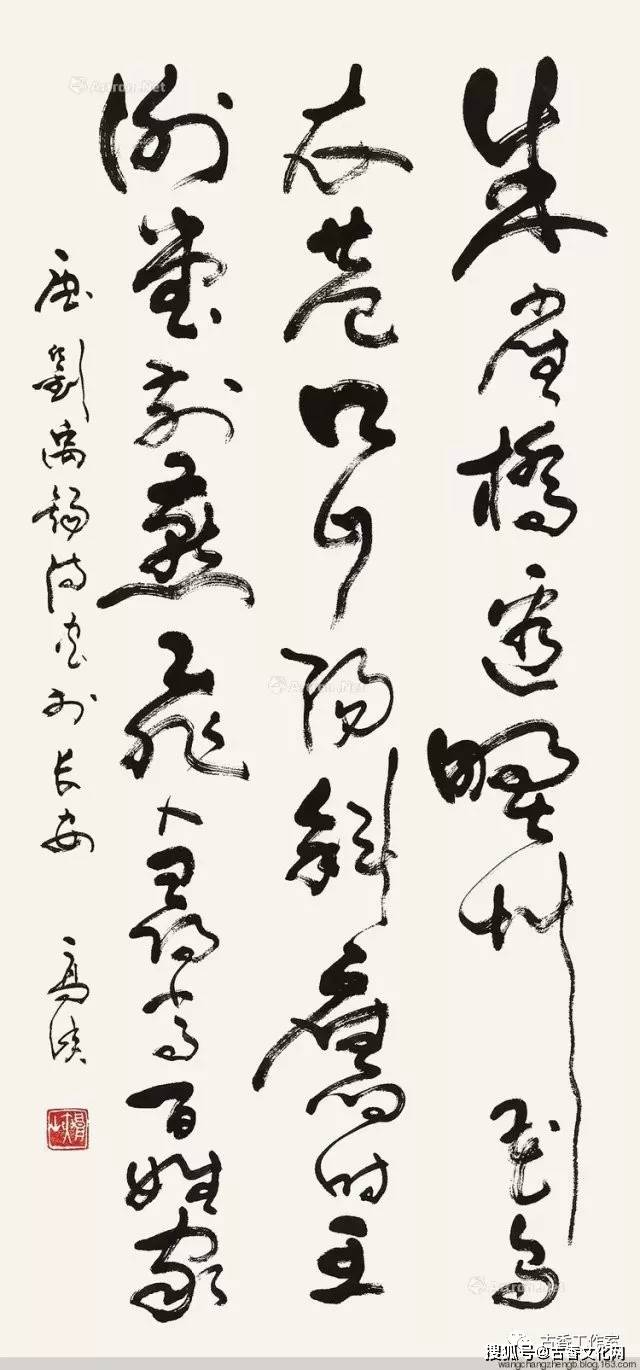 朱雀橋邊野艸花烏
衣巷口夕陽斜舊時王
謝堂前燕飛入尋常百姓家
唐劉禹錫詩書於長安
高峽
Artron.Net
Artron.Net
Artron.Net
古香工作室
搜狐号@古香文化网
wangchangzhengb.blog.163.com